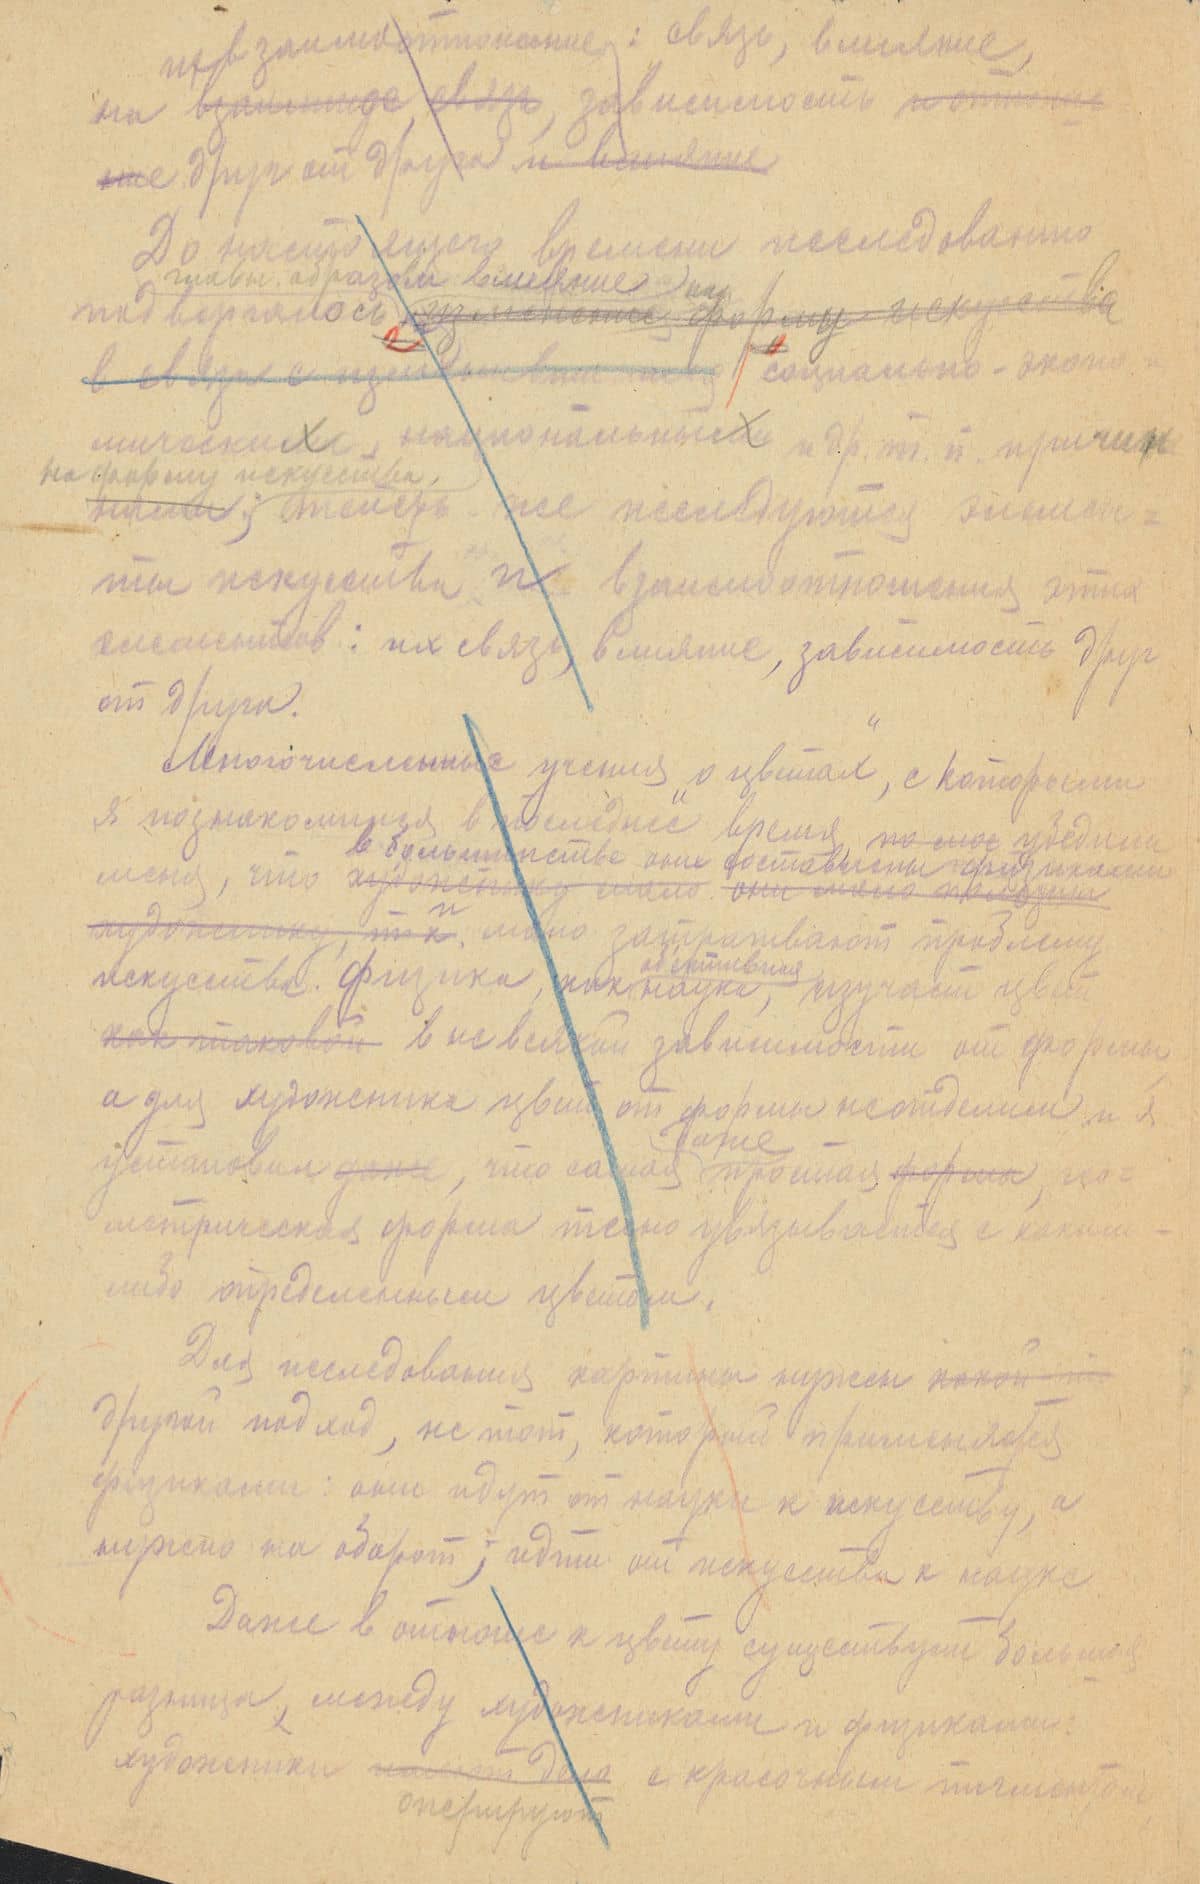 их взаимоотношение: связь, влияние,
на взаимнода, связь, зависимость и отноше
ние друг от друга и влияние
До настоящего времени исследованию
главн. образом влияние
подвергалось изменение форму искусства
в связи с социально-эконо
мическими, национальных и др. т. п. причин
на форму искусства,
нами; теперь же исследуются элемен=
ты искусства и взаимоотношения этих
элементов: их связь, влияние, зависимость друг
от друга.
Многочисленные учения „о цветах“, с которыми
я познакомился в последнее время, убедили
в большинстве они составлены физиками
меня, что художнику мало они мало полезны
художнику, т.к. мало затрагивают проблему
искусства. Физика, как наука, изучает цвет
как таковой вне всякой зависимости от формы,
а для художника цвет от формы неотделим и я
даже
установил даже, что самая простая форма, гео=
метрическая форма тесно увязывается с каким-
либо определенным цветом.
Для исследования картины нужен какой-то
другой подход, не тот, который применяется
физиками: они идут от науки к искусству, а
нужно на оборот; идти от искусства к науке
Даже в отношение к цвету существует большая
разница, между художниками и физиками:
художники дела с красочным пигментом,
оперируют